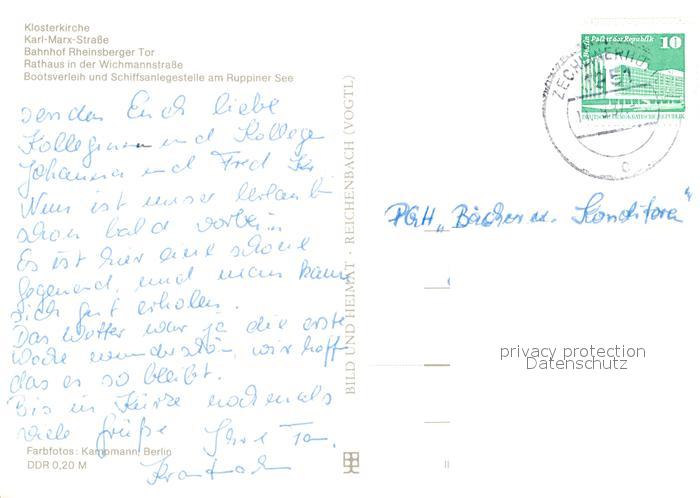 Klosterkirche
Karl-Marx-Straße
Bahnhof Rheinsberger Tor
Rathaus in der Wichmannstraße
Bootsverleih und Schiffsanlegestelle am Ruppiner See
senden Euch liebe
Kolleginnen und Kollege
Johanna und Fred
Nun ist unser Urlaub
schon bald vorbei.
Es ist hier eine schöne
Gegend, und man kann
sich gut erholen.
Das Wetter war ja die erste
Woche wunderschön, wir hoff
das es so bleibt.
Bis in Kürze nochmals
viele Grüße Ihre
Farbfotos: Kampmann, Berlin
DDR 0,20 M
BILD UND HEIMAT · REICHENBACH (VOGTL)
Palast der Republik 10
DEUTSCHE DEMOKRATISCHE REPUBLIK
ZECHLINERHÜTTE
1951
c
PGH „Bäcker u. Konditoren"
privacy protection
Datenschutz